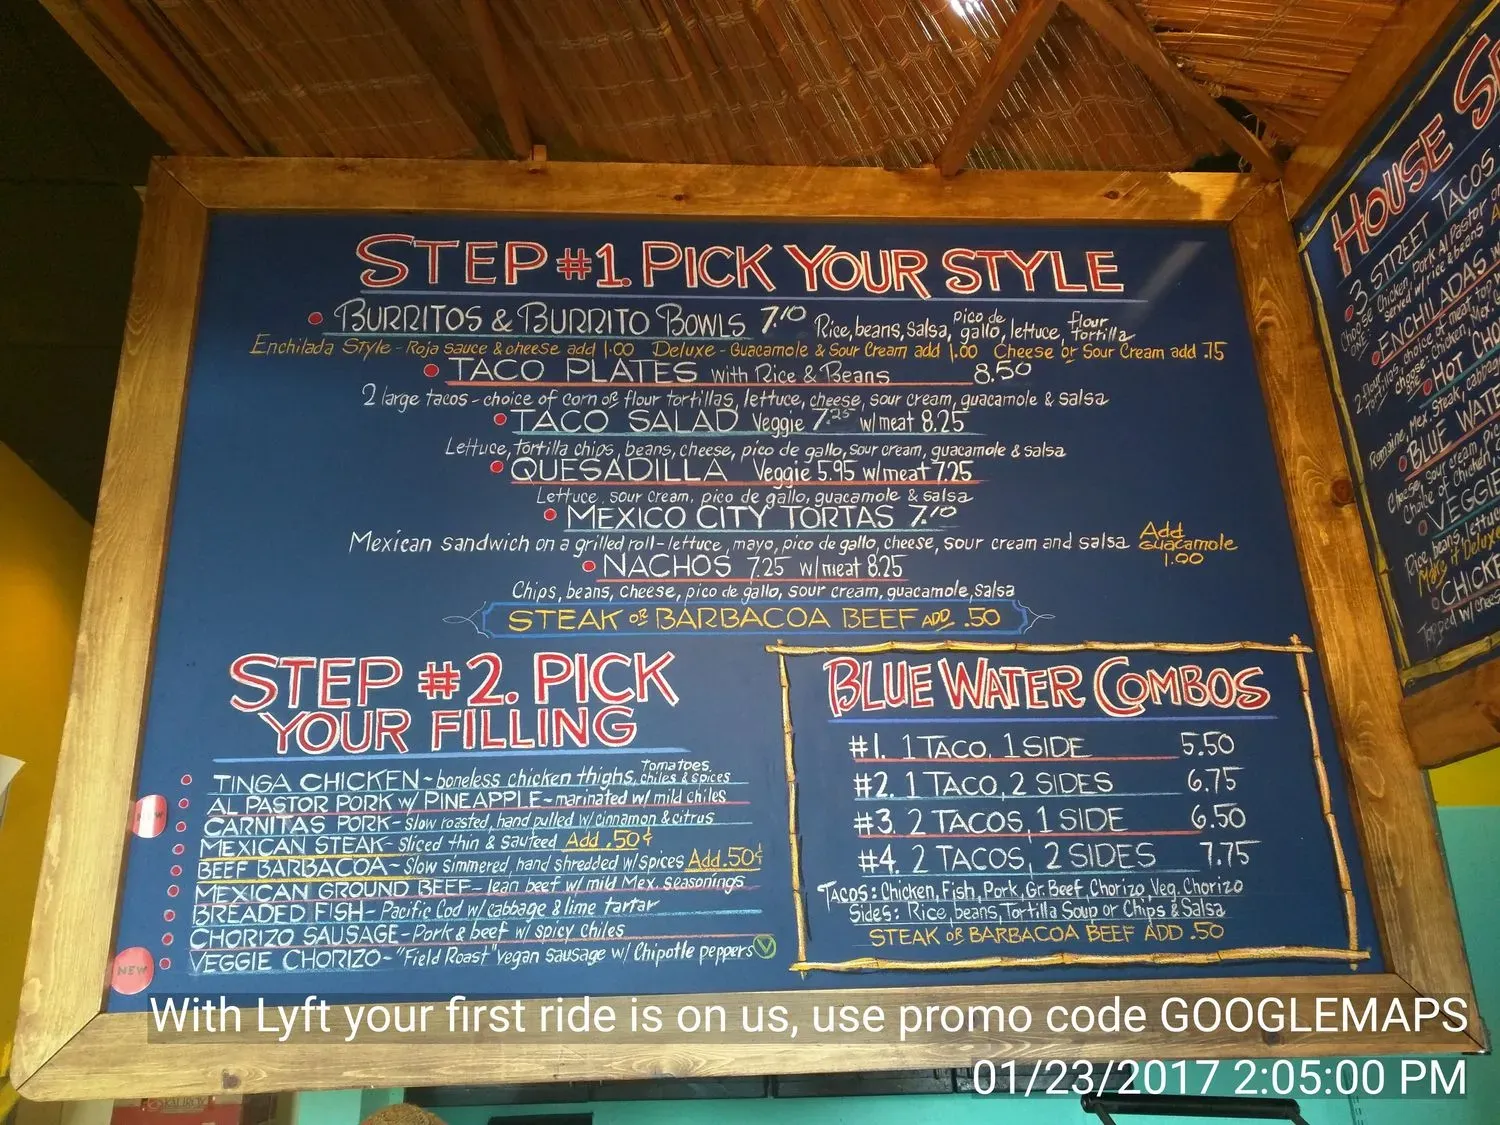 STEP #1. PICK YOUR STYLE
BURRITOS & BURRITO BOWLS 7.10 Rice, beans, salsa, pico de gallo, lettuce, flour tortilla
Enchilada Style - Roja sauce & cheese add 1.00 Deluxe - Guacamole & Sour Cream add 1.00 Cheese or Sour Cream add .75
TACO PLATES with Rice & Beans 8.50
2 large tacos - choice of corn or flour tortillas, lettuce, cheese, sour cream, guacamole & salsa
TACO SALAD Veggie 7.25 w/meat 8.25
Lettuce, tortilla chips, beans, cheese, pico de gallo, sour cream, guacamole & salsa
QUESADILLA Veggie 5.95 w/meat 7.25
Lettuce, sour cream, pico de gallo, guacamole & salsa
MEXICO CITY TORTAS 7.10
Mexican sandwich on a grilled roll - lettuce, mayo, pico de gallo, cheese, sour cream and salsa
Add
Guacamole
1.00
NACHOS 7.25 w/meat 8.25
Chips, beans, cheese, pico de gallo, sour cream, guacamole, salsa
STEAK OR BARBACOA BEEF ADD .50
STEP #2. PICK
YOUR FILLING
TINGA CHICKEN ~ boneless chicken thighs, tomatoes, chiles & spices
AL PASTOR PORK w/ PINEAPPLE ~ marinated w/ mild chiles
CARNITAS PORK - slow roasted, hand pulled w/ cinnamon & citrus
MEXICAN STEAK - sliced thin & sauteed Add .50¢
BEEF BARBACOA ~ Slow simmered, hand shredded w/spices Add .50¢
MEXICAN GROUND BEEF - lean beef w/ mild Mex. seasonings
BREADED FISH - Pacific Cod w/ cabbage & lime tartar
CHORIZO SAUSAGE - Pork & beef w/ spicy chiles
VEGGIE CHORIZO - "Field Roast" vegan sausage w/ Chipotle peppers V
NEW
NEW
BLUE WATER COMBOS
#1. 1 TACO, 1 SIDE 5.50
#2. 1 TACO, 2 SIDES 6.75
#3. 2 TACOS, 1 SIDE 6.50
#4. 2 TACOS, 2 SIDES 7.75
TACOS: Chicken, Fish, Pork, Gr. Beef, Chorizo, Veg. Chorizo
Sides: Rice, beans, Tortilla Soup or Chips & Salsa
STEAK OR BARBACOA BEEF ADD .50
HOUSE
3 STREET TACOS
Choose Chicken, Pork Al Pastor
ONE served w/ rice & beans
ENCHILADAS
choice of meat
choose chicken
HOT
Romaine, Mex. Steak, cabbage
BLUE WATER
Cheese, sour cream
Choice of Chicken,
VEGGIE
Rice, beans, lettuce
Make it Deluxe
CHICKEN
Topped w/ cheese
With Lyft your first ride is on us, use promo code GOOGLEMAPS
01/23/2017 2:05:00 PM